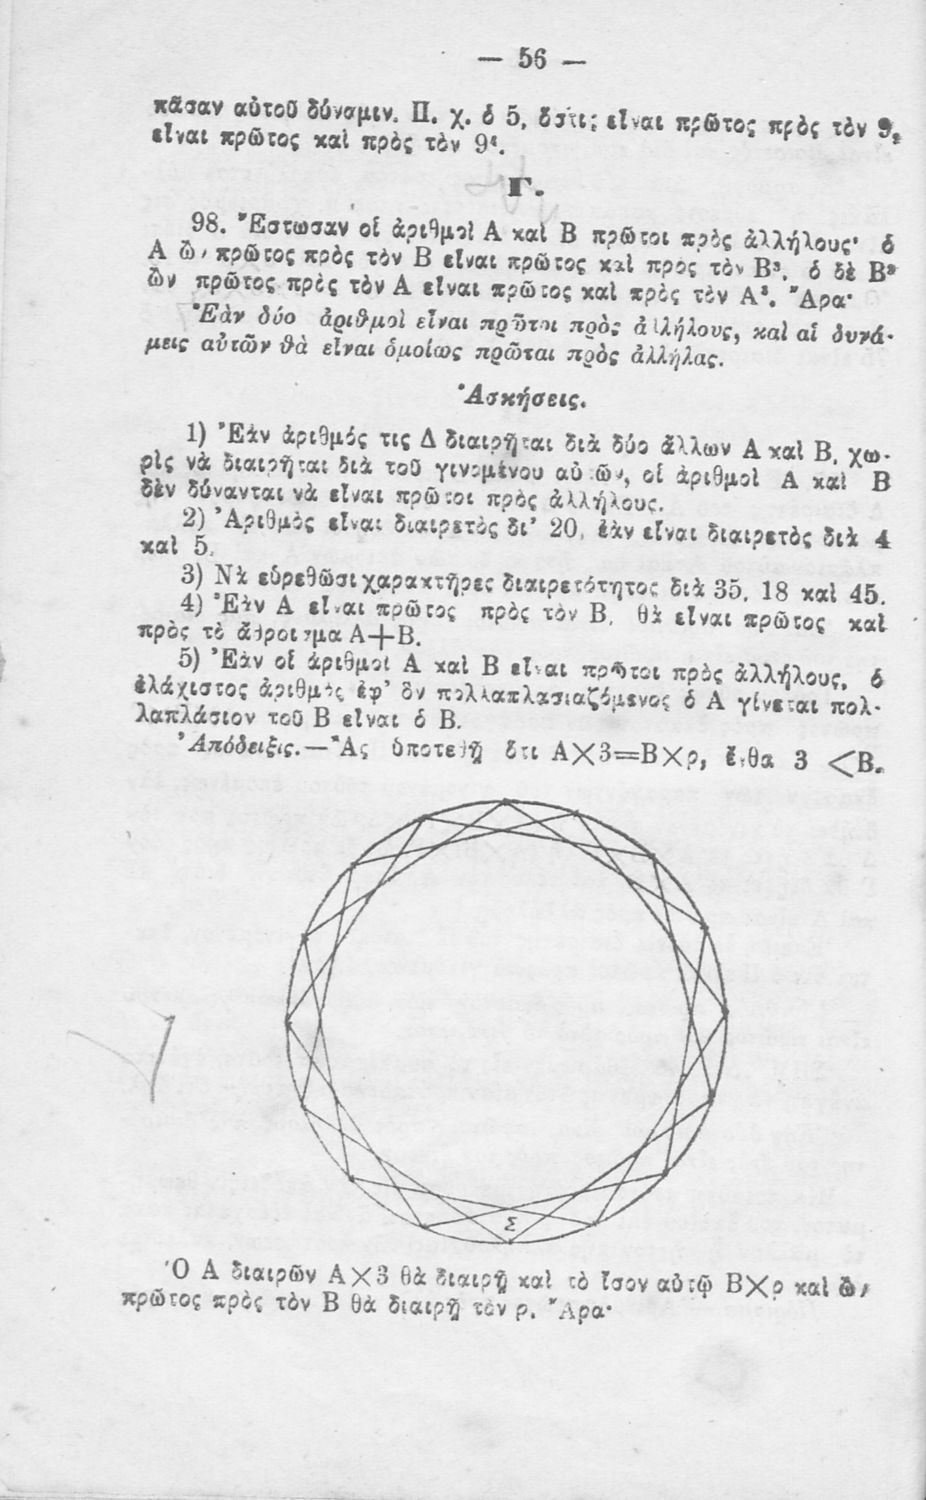 — 56 —
πᾶσαν αὐτοῦ δύναμιν. Π. χ. ὁ 5, ὅστις εἶναι πρῶτος πρὸς τὸν 9,
εἶναι πρῶτος καὶ πρὸς τὸν 9⁴.
Γ.
98. Ἔστωσαν οἱ ἀριθμοὶ Α καὶ Β πρῶτοι πρὸς ἀλλήλους· ὁ
Α ὢν πρῶτος πρὸς τὸν Β εἶναι πρῶτος καὶ πρὸς τὸν Β³. ὁ δὲ Β³
ὢν πρῶτος πρὸς τὸν Α εἶναι πρῶτος καὶ πρὸς τὸν Α³. Ἄρα·
Ἐὰν δύο ἀριθμοὶ εἶναι πρῶτοι πρὸς ἀλλήλους, καὶ αἱ δυνά-
μεις αὐτῶν θὰ εἶναι ὁμοίως πρῶται πρὸς ἀλλήλας.
Ἀσκήσεις.
1) Ἐὰν ἀριθμός τις Δ διαιρῆται διὰ δύο ἄλλων Α καὶ Β, χω-
ρὶς νὰ διαιρῆται διὰ τοῦ γινομένου αὐτῶν, οἱ ἀριθμοὶ Α καὶ Β
δὲν δύνανται νὰ εἶναι πρῶτοι πρὸς ἀλλήλους.
2) Ἀριθμὸς εἶναι διαιρετὸς δι' 20, ἐὰν εἶναι διαιρετὸς διὰ 4
καὶ 5.
3) Νὰ εὑρεθῶσι χαρακτῆρες διαιρετότητος διὰ 35, 18 καὶ 45.
4) Ἐὰν Α εἶναι πρῶτος πρὸς τὸν Β, θὰ εἶναι πρῶτος καὶ
πρὸς τὸ ἄθροισμα Α+Β.
5) Ἐὰν οἱ ἀριθμοὶ Α καὶ Β εἶναι πρῶτοι πρὸς ἀλλήλους, ὁ
ἐλάχιστος ἀριθμὸς ἐφ' ὃν πολλαπλασιαζόμενος ὁ Α γίνεται πολ-
λαπλάσιον τοῦ Β εἶναι ὁ Β.
Ἀπόδειξις.—Ἂς ὑποτεθῇ ὅτι Α×3=Β×ρ, ἔνθα 3 <Β.
Σ
Ὁ Α διαιρῶν Α×3 θὰ διαιρῇ καὶ τὸ ἴσον αὐτῷ Β×ρ καὶ ὢν
πρῶτος πρὸς τὸν Β θὰ διαιρῇ τὸν ρ. Ἄρα·